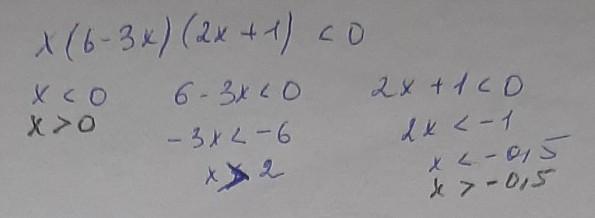 x(6-3x)(2x+1) <0
x<0 6-3x<0 2x+1<0
x>0 -3x<-6 2x<-1
x>2 x<-0,5
x>-0,5